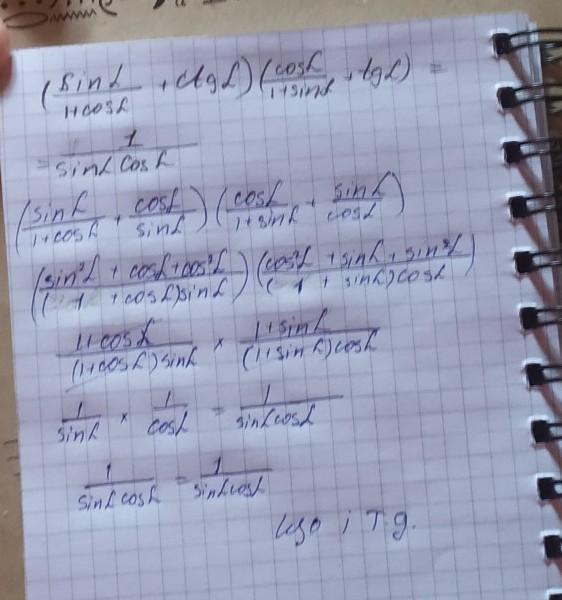 (sinα/1+cosα + ctgα)(cosα/1+sinα + tgα) =
= 1/sinα cosα
(sinα/1+cosα + cosα/sinα)(cosα/1+sinα + sinα/cosα)
(sin²α + cosα + cos²α/(1 + cosα)sinα)(cos²α + sinα + sin²α/(1 + sinα)cosα)
1+cosα/(1+cosα)sinα × 1+sinα/(1+sinα)cosα
1/sinα × 1/cosα = 1/sinα cosα
1/sinα cosα = 1/sinα cosα
що і т.д.